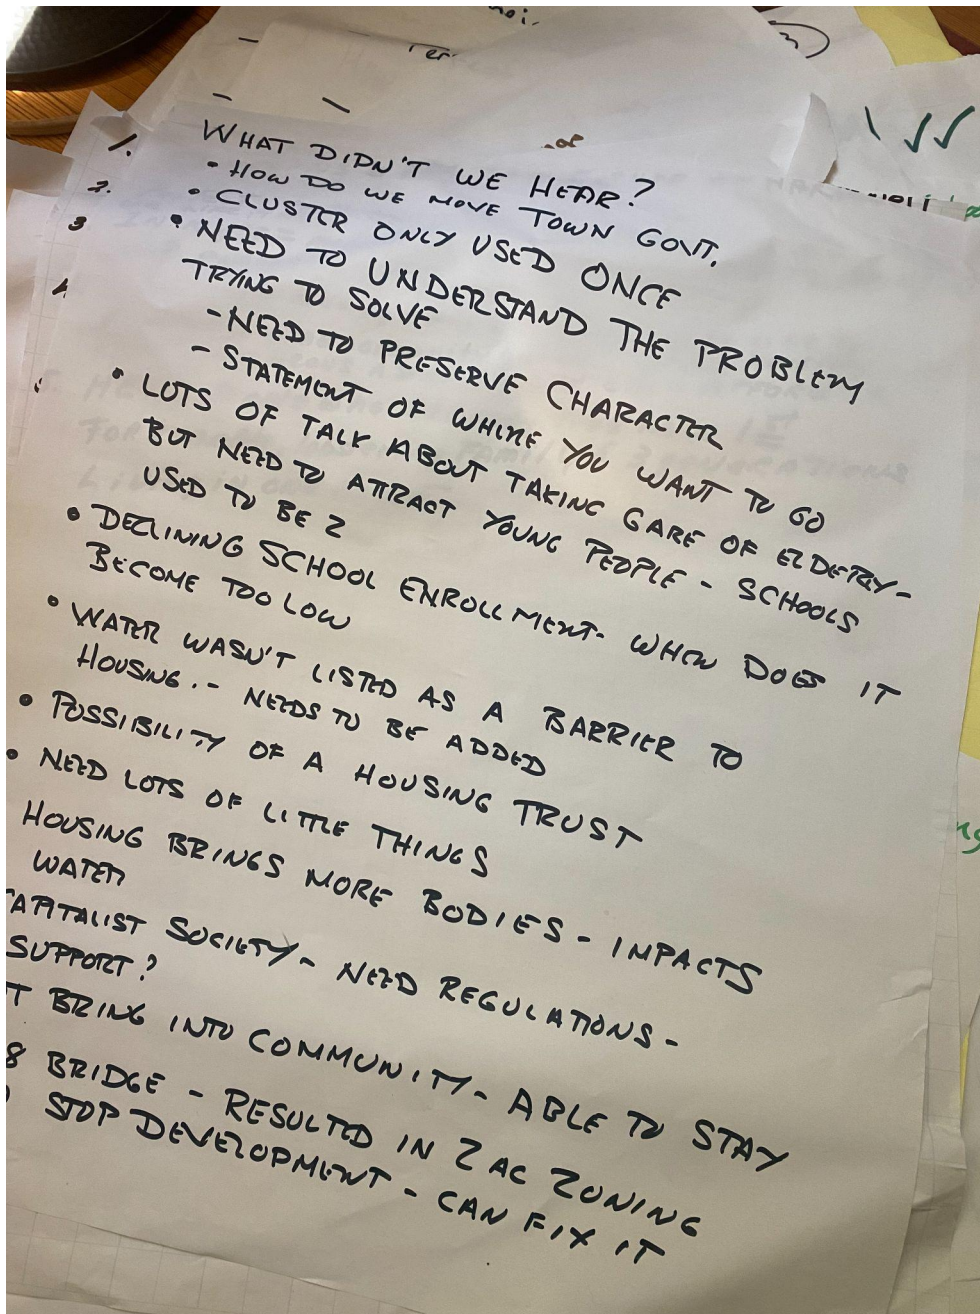 WHAT DIDN'T WE HEAR?
• HOW DO WE MOVE TOWN GOVT.
• CLUSTER ONLY USED ONCE
• NEED TO UNDERSTAND THE PROBLEM
TRYING TO SOLVE
- NEED TO PRESERVE CHARACTER
- STATEMENT OF WHERE YOU WANT TO GO
• LOTS OF TALK ABOUT TAKING CARE OF ELDERLY-
BUT NEED TO ATTRACT YOUNG PEOPLE - SCHOOLS
USED TO BE 2
• DECLINING SCHOOL ENROLLMENT- WHEN DOES IT
BECOME TOO LOW
• WATER WASN'T LISTED AS A BARRIER TO
HOUSING. - NEEDS TO BE ADDED
• POSSIBILITY OF A HOUSING TRUST
• NEED LOTS OF LITTLE THINGS
HOUSING BRINGS MORE BODIES - IMPACTS
WATER
CAPITALIST SOCIETY - NEED REGULATIONS -
SUPPORT?
T BRING INTO COMMUNITY - ABLE TO STAY
8 BRIDGE - RESULTED IN 2 AC ZONING
STOP DEVELOPMENT - CAN FIX IT